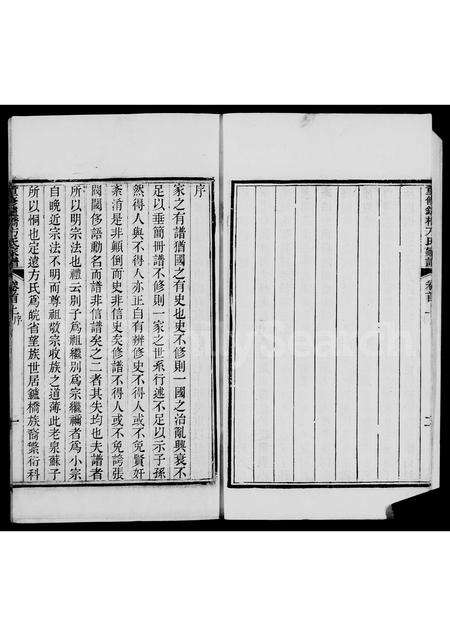 重修鑪橋方氏家譜
卷首
序
家之有譜猶國之有史也史不修則一國之治亂興衰不
足以垂簡冊譜不修則一家之世系行述不足以示子孫
然得人與不得人亦正自有辨修史不得人或不免賢奸
紊淆是非顛倒而史非信史矣修譜不得人或不免誇張
閥閱侈語勳名而譜非信譜矣之二者其失均也夫譜者
所以明宗法也禮云別子為祖繼別為宗繼禰者為小宗
自晚近宗法不明而尊祖敬宗收族之道薄此老泉蘇子
所以惻也定遠方氏為皖省望族世居鑪橋族裔繁衍科
重修鑪橋方氏家譜
卷首上
序
一